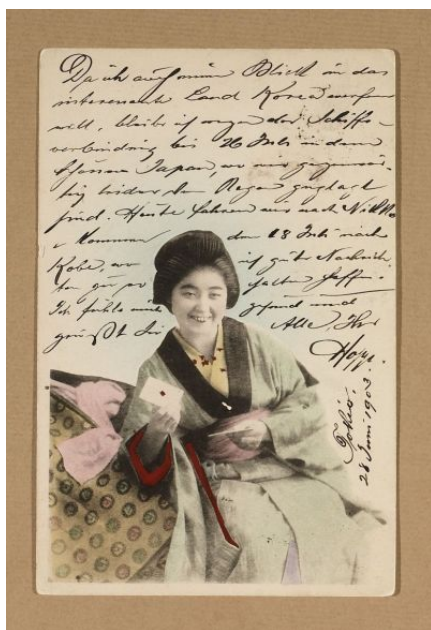 Da ich auch einen Blick in das
interessante Land Korea werfen
will, bleibe ich wegen der Schiffs-
verbindung bis 26 Juli in dem
schönen Japan, wo wir gegenwär-
tig leider Regen geplagt
sind. Heute fahren wir nach Nikko
kommen den 18 Juli nach
Kobe, wo ich gute Nachrich-
ten zu
Ich fühle mich gesund und
grüßt Sie Alle, Ihr
Hopp.
Tokio
28 Juni 1903